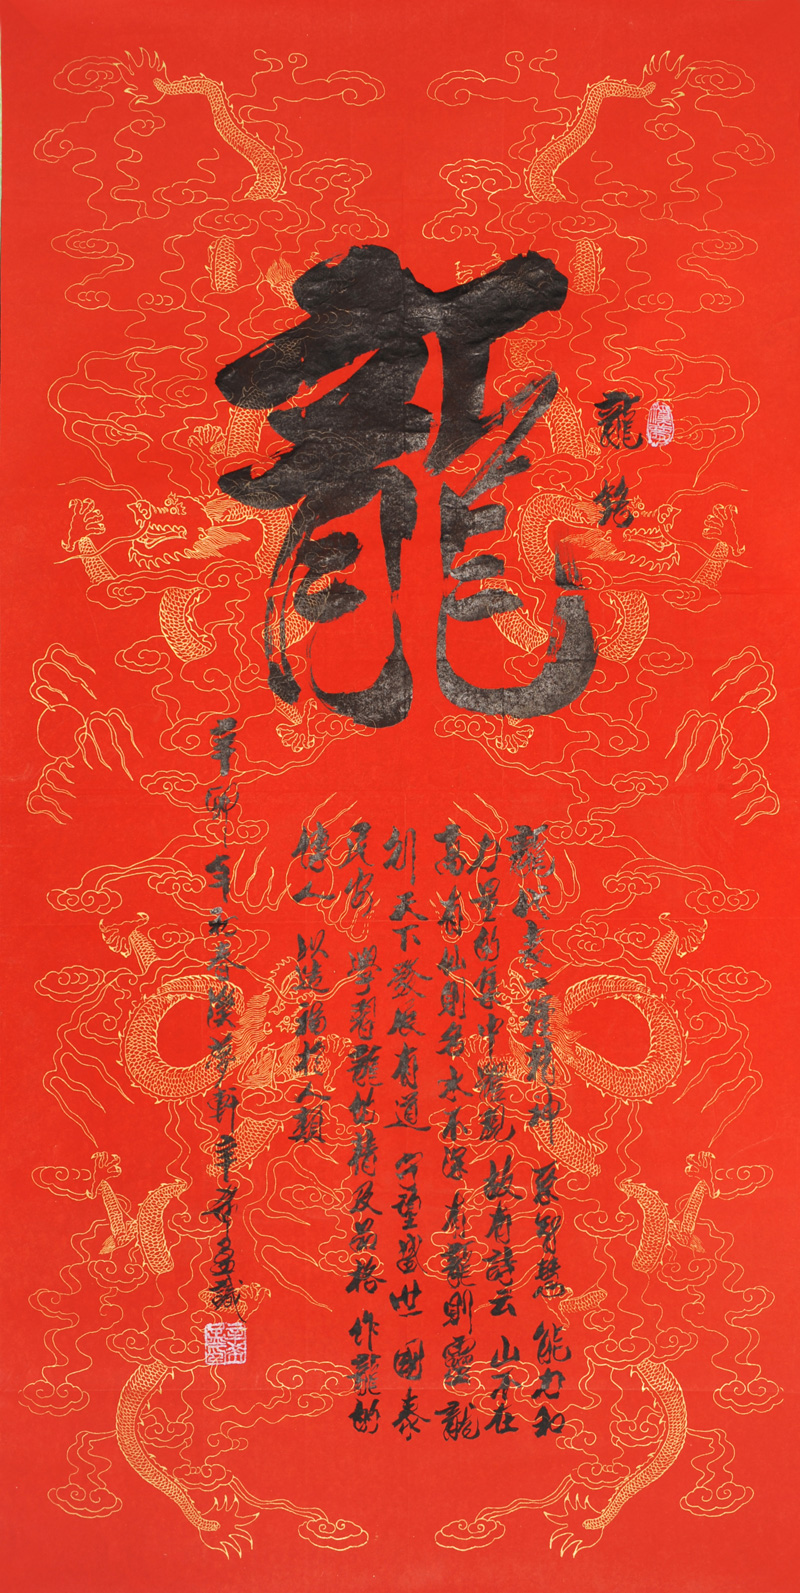 龍
龍銘
龍代表一種精神 是智慧 能力和
力量的集中體現 故有詩云 山不在
高有仙則名水不深有龍則靈龍
到天下發展有道 今望當世國泰
民安 學習龍的精及品格 作龍的
傳人 以造福於人類
辛卯年之春漢夢軒辛希孟識